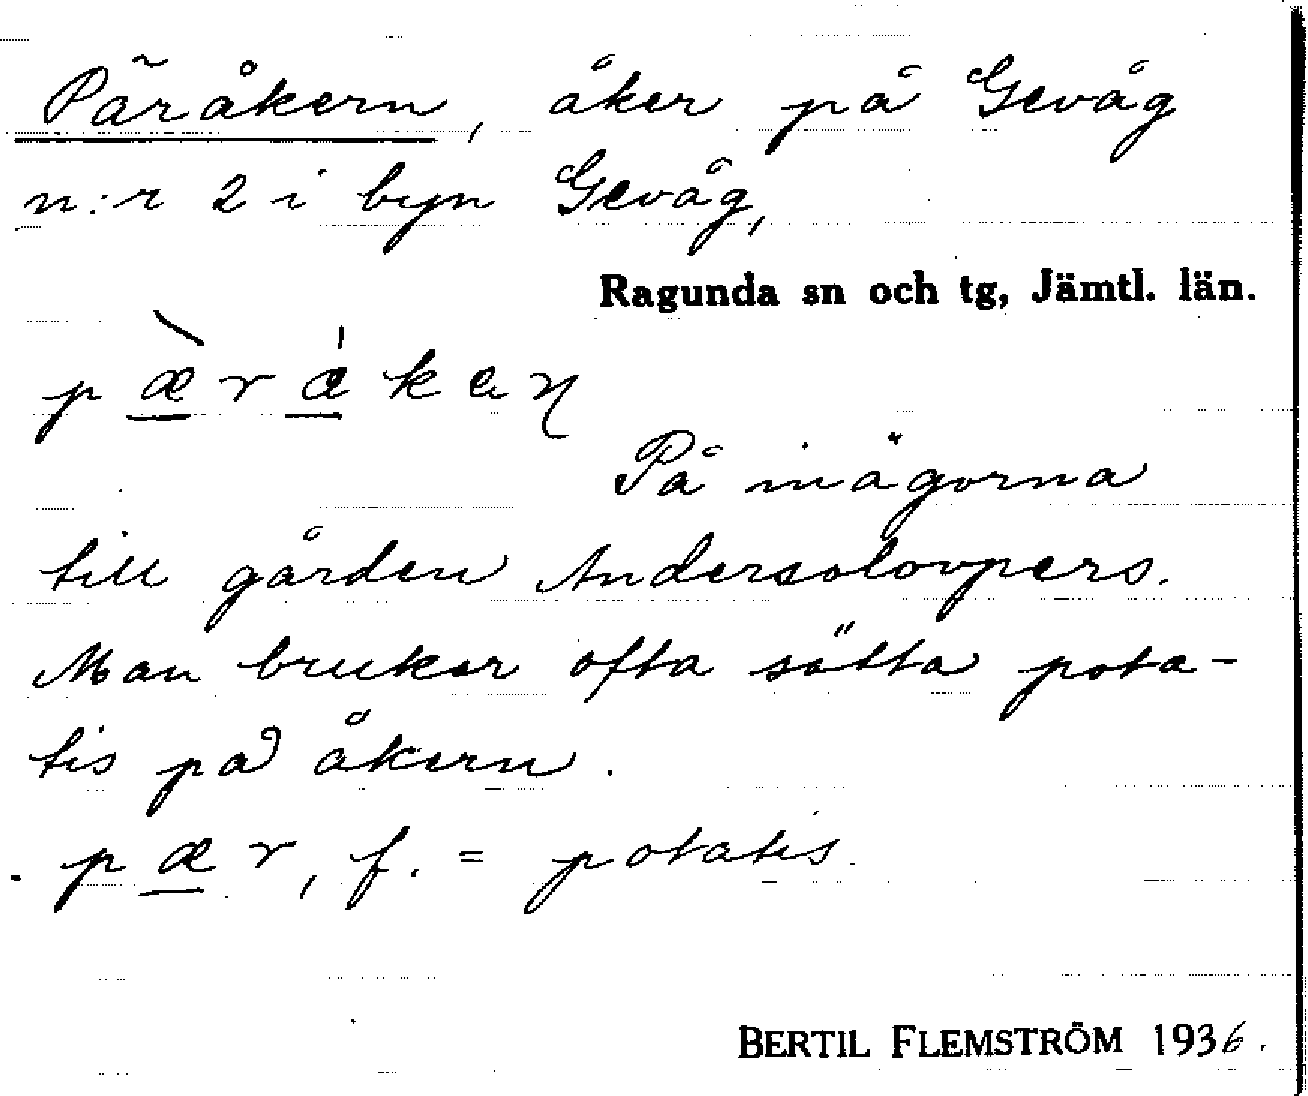 Päråkern, åker på Gevåg
n:r 2 i byn Gevåg,
Ragunda sn och tg, Jämtl. län.
På inägorna
till gården Andersolovpers.
Man brukar ofta sätta pota-
tis på åkern.
pær, f. = potatis.
BERTIL FLEMSTRÖM 1936.